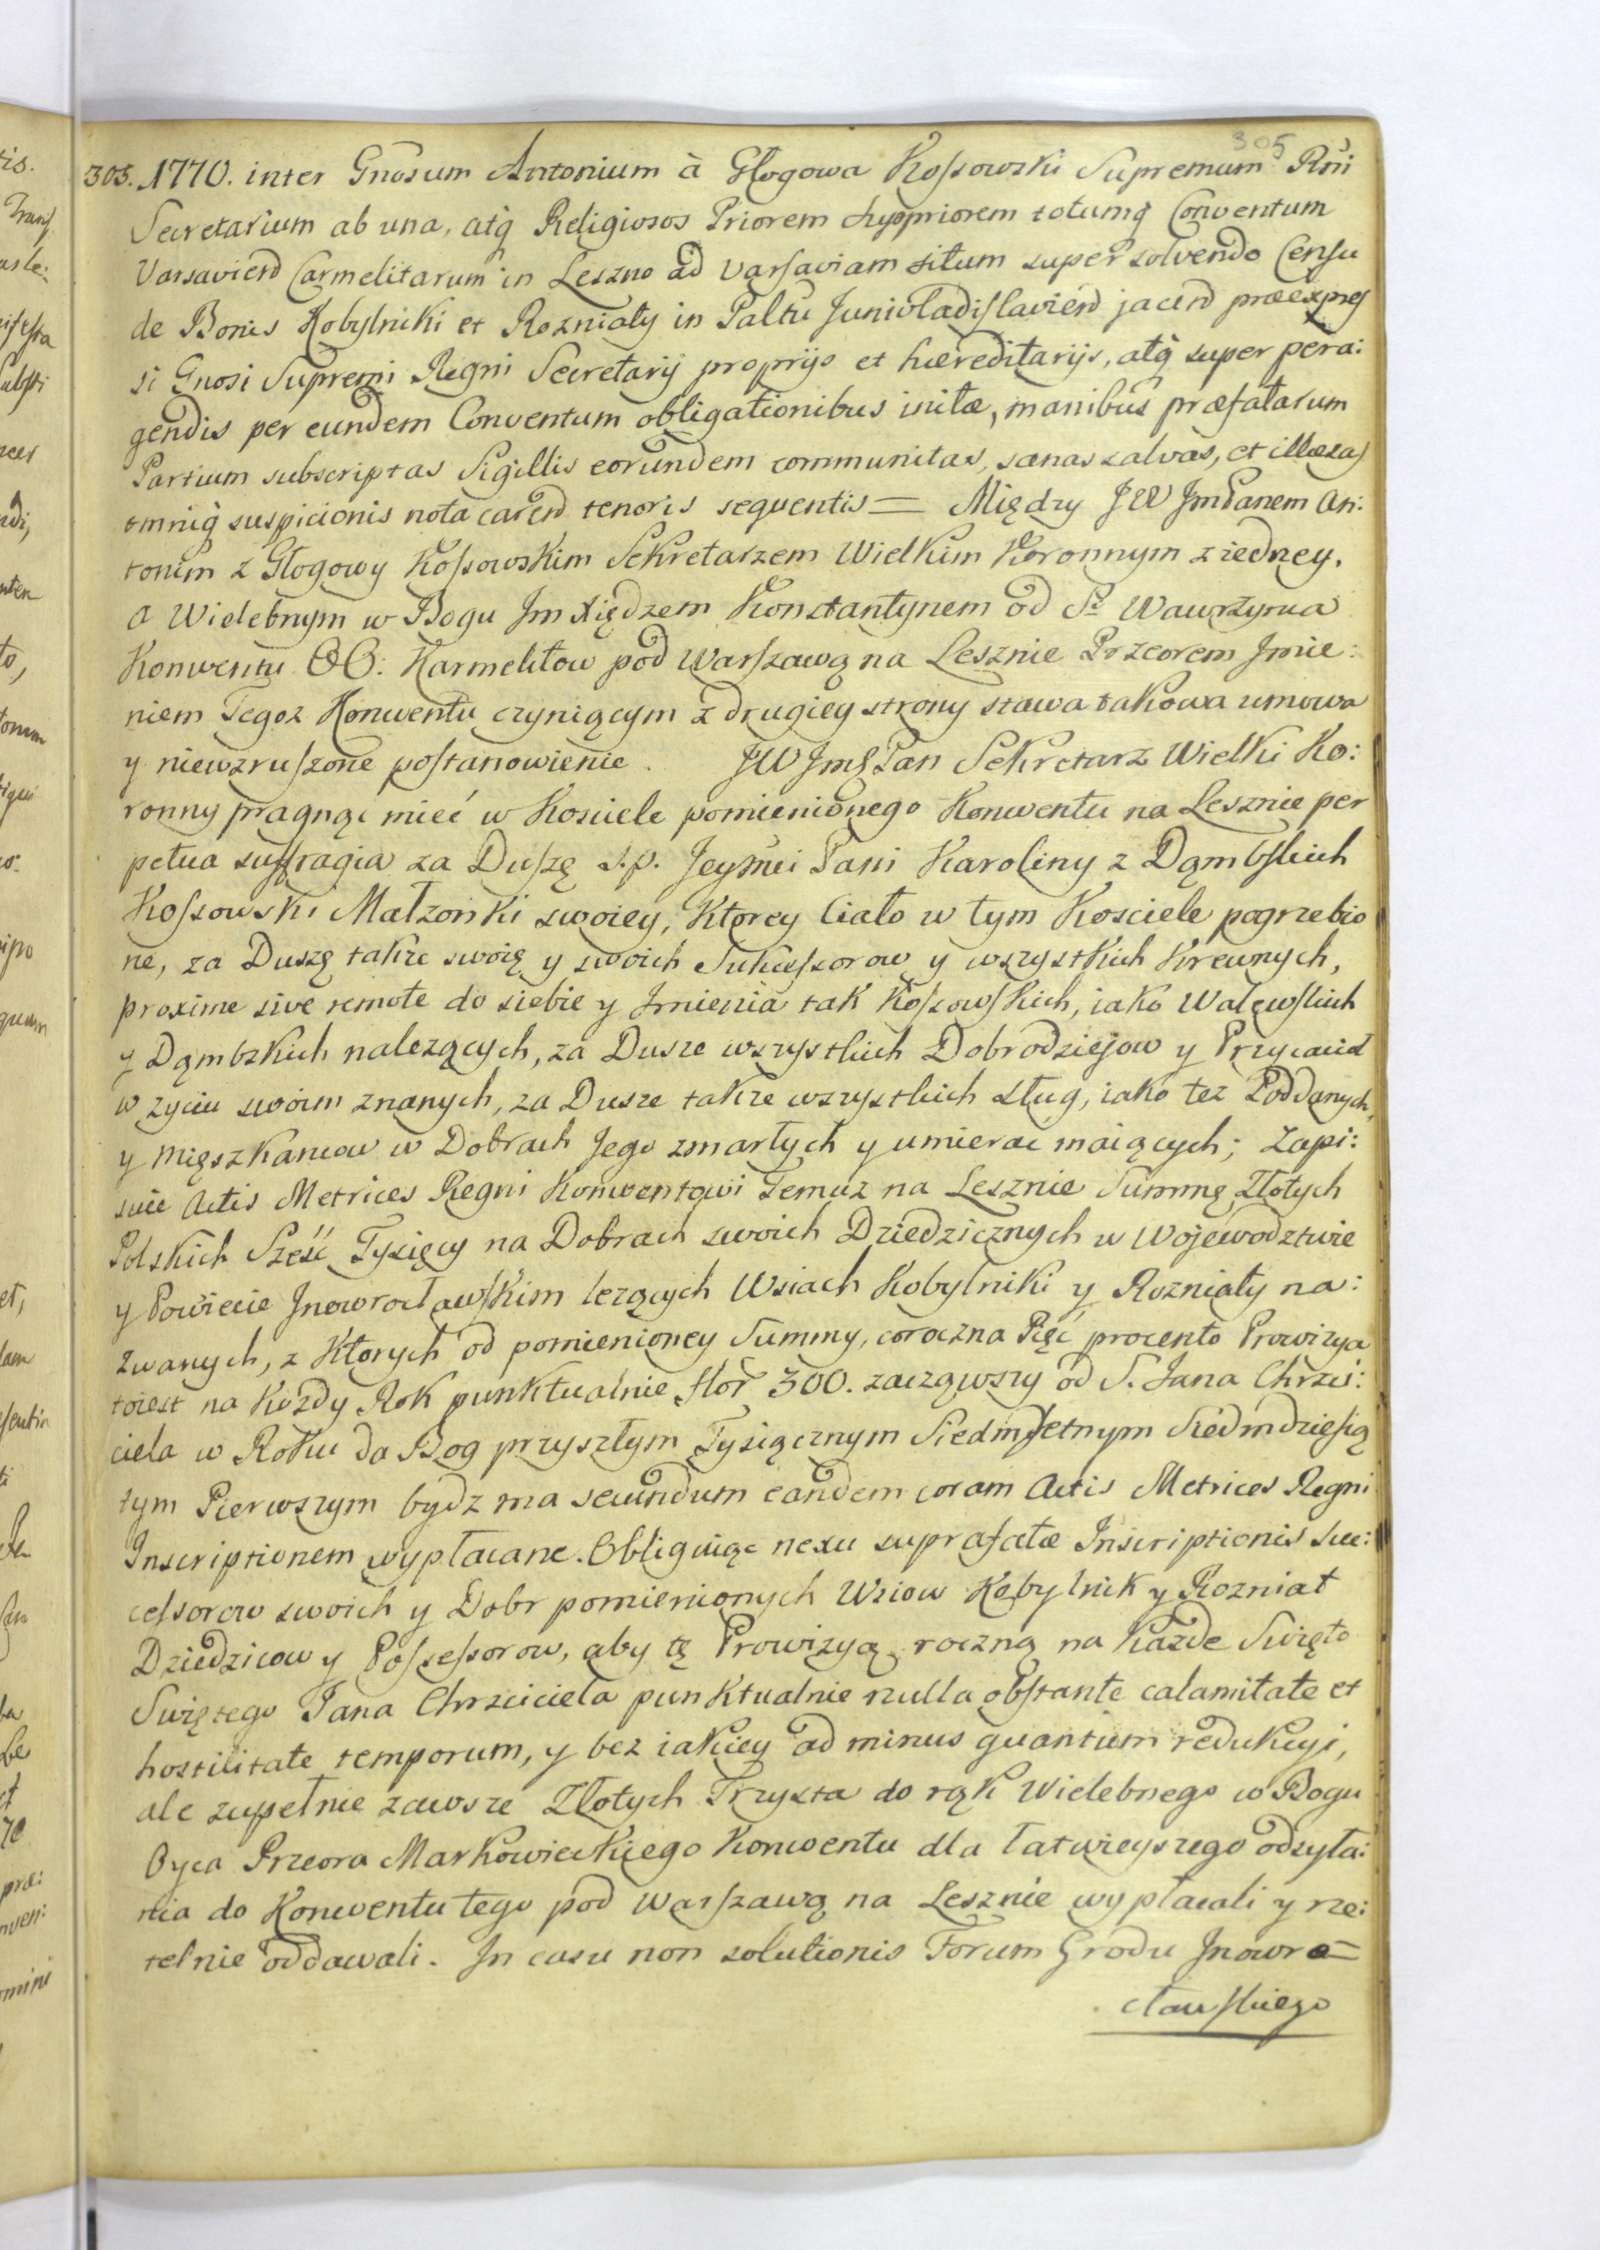 305
303. 1770. inter Gnosum Antonium à Głogowa Kossowski Supremum Rni
Secretarium ab una, atq Religiosos Priorem Suppriorem totumq Conventum
Varsavien Carmelitarum in Leszno ad Varsaviam situm super solvendo Censu
de Bonis Kobylniki et Rozniaty in Paltu Junivladislavien jacen præexpres
si Gnosi Supremi Regni Secretarij proprijs et hæreditarijs, atq super pera:
gendis per eundem Conventum obligationibus initæ, manibus præfatarum
Partium subscriptas Sigillis eorundem communitas, sanas salvas, et illæsas
omniq suspicionis nota caren tenoris sequentis = Między JW JmPanem An:
tonim z Głogowy Kossowskim Sekretarzem Wielkim Koronnym z iedney,
a Wielebnym w Bogu Jm Xiędzem Konstantynem od S. Wawrzyna
Konwentu OO: Karmelitow pod Warszawą na Lesznie Przeorem Jmie:
niem Tegoz Konwentu czyniącym z drugiey strony stawa takowa umowa
y niewzruszone postanowienie. JW Jmć Pan Sekretarz Wielki Ko:
ronny pragnąc mieć w Kosciele pomienionego Konwentu na Lesznie per
petua suffragia za Duszę s.p. Jeymci Pani Karoliny z Dąmbskich
Kossowski Małzonki swoiey, Ktorey Ciało w tym Kosciele pogrzebio
ne, za Duszę takze swoię y swoich Sukcessorow y wszystkich Krewnych,
proxime sive remote do siebie y Jmienia tak Kossowskich, iako Walewskich
y Dąmbskich nalezących, za Dusze wszystkich Dobrodziejow y Przyaciół
w zyciu swoim znanych, za Dusze takze wszystkich sług, iako tez Poddanych,
y Mięszkancow w Dobrach Jego zmarłych y umierac maiących; Zapi:
suie Actis Metrices Regni Konwentowi Temuz na Lesznie Summę Złotych
Polskich Sześć Tysięcy na Dobrach swoich Dziedzicznych w Wojewodztwie
y Powiecie Jnowrocławskim lezących Wsiach Kobylniki y Rozniaty na:
zwanych, z Ktorych od pomienioney Summy, coroczna Pięć procento Prowizya
toiest na Kozdy Rok punktualnie flor 300. zacząwszy od S. Jana Chrzci:
ciela w Roku da Bog przyszłym Tysiącznym Siedmsetnym Siedmdziesią
tym Pierwszym bydz ma secundum eandem coram Actis Metrices Regni
Inscriptionem wypłacane. Obliguiąc nexu suprafatæ Inscriptionis Suc:
cessorow swoich y Dobr pomienionych Wsiow Kobylnik y Rozniat
Dziedzicow y Possessorow, aby tę Prowizyą roczną na Kazde Swięto
Swiętego Jana Chrzciciela punktualnie nulla obstante calamitate et
hostilitate temporum, y bez iakiey ad minus quantum redukcyi,
ale zupełnie zawsze Złotych Trzysta do rąk Wielebnego w Bogu
Oyca Przeora Markowieckiego Konwentu dla łatwieyszego odsyła:
nia do Konwentu tego pod Warszawą na Lesznie wypłacali y rze:
telnie oddawali. In casu non solutionis Forum Grodu Jnowro=
cławskiego